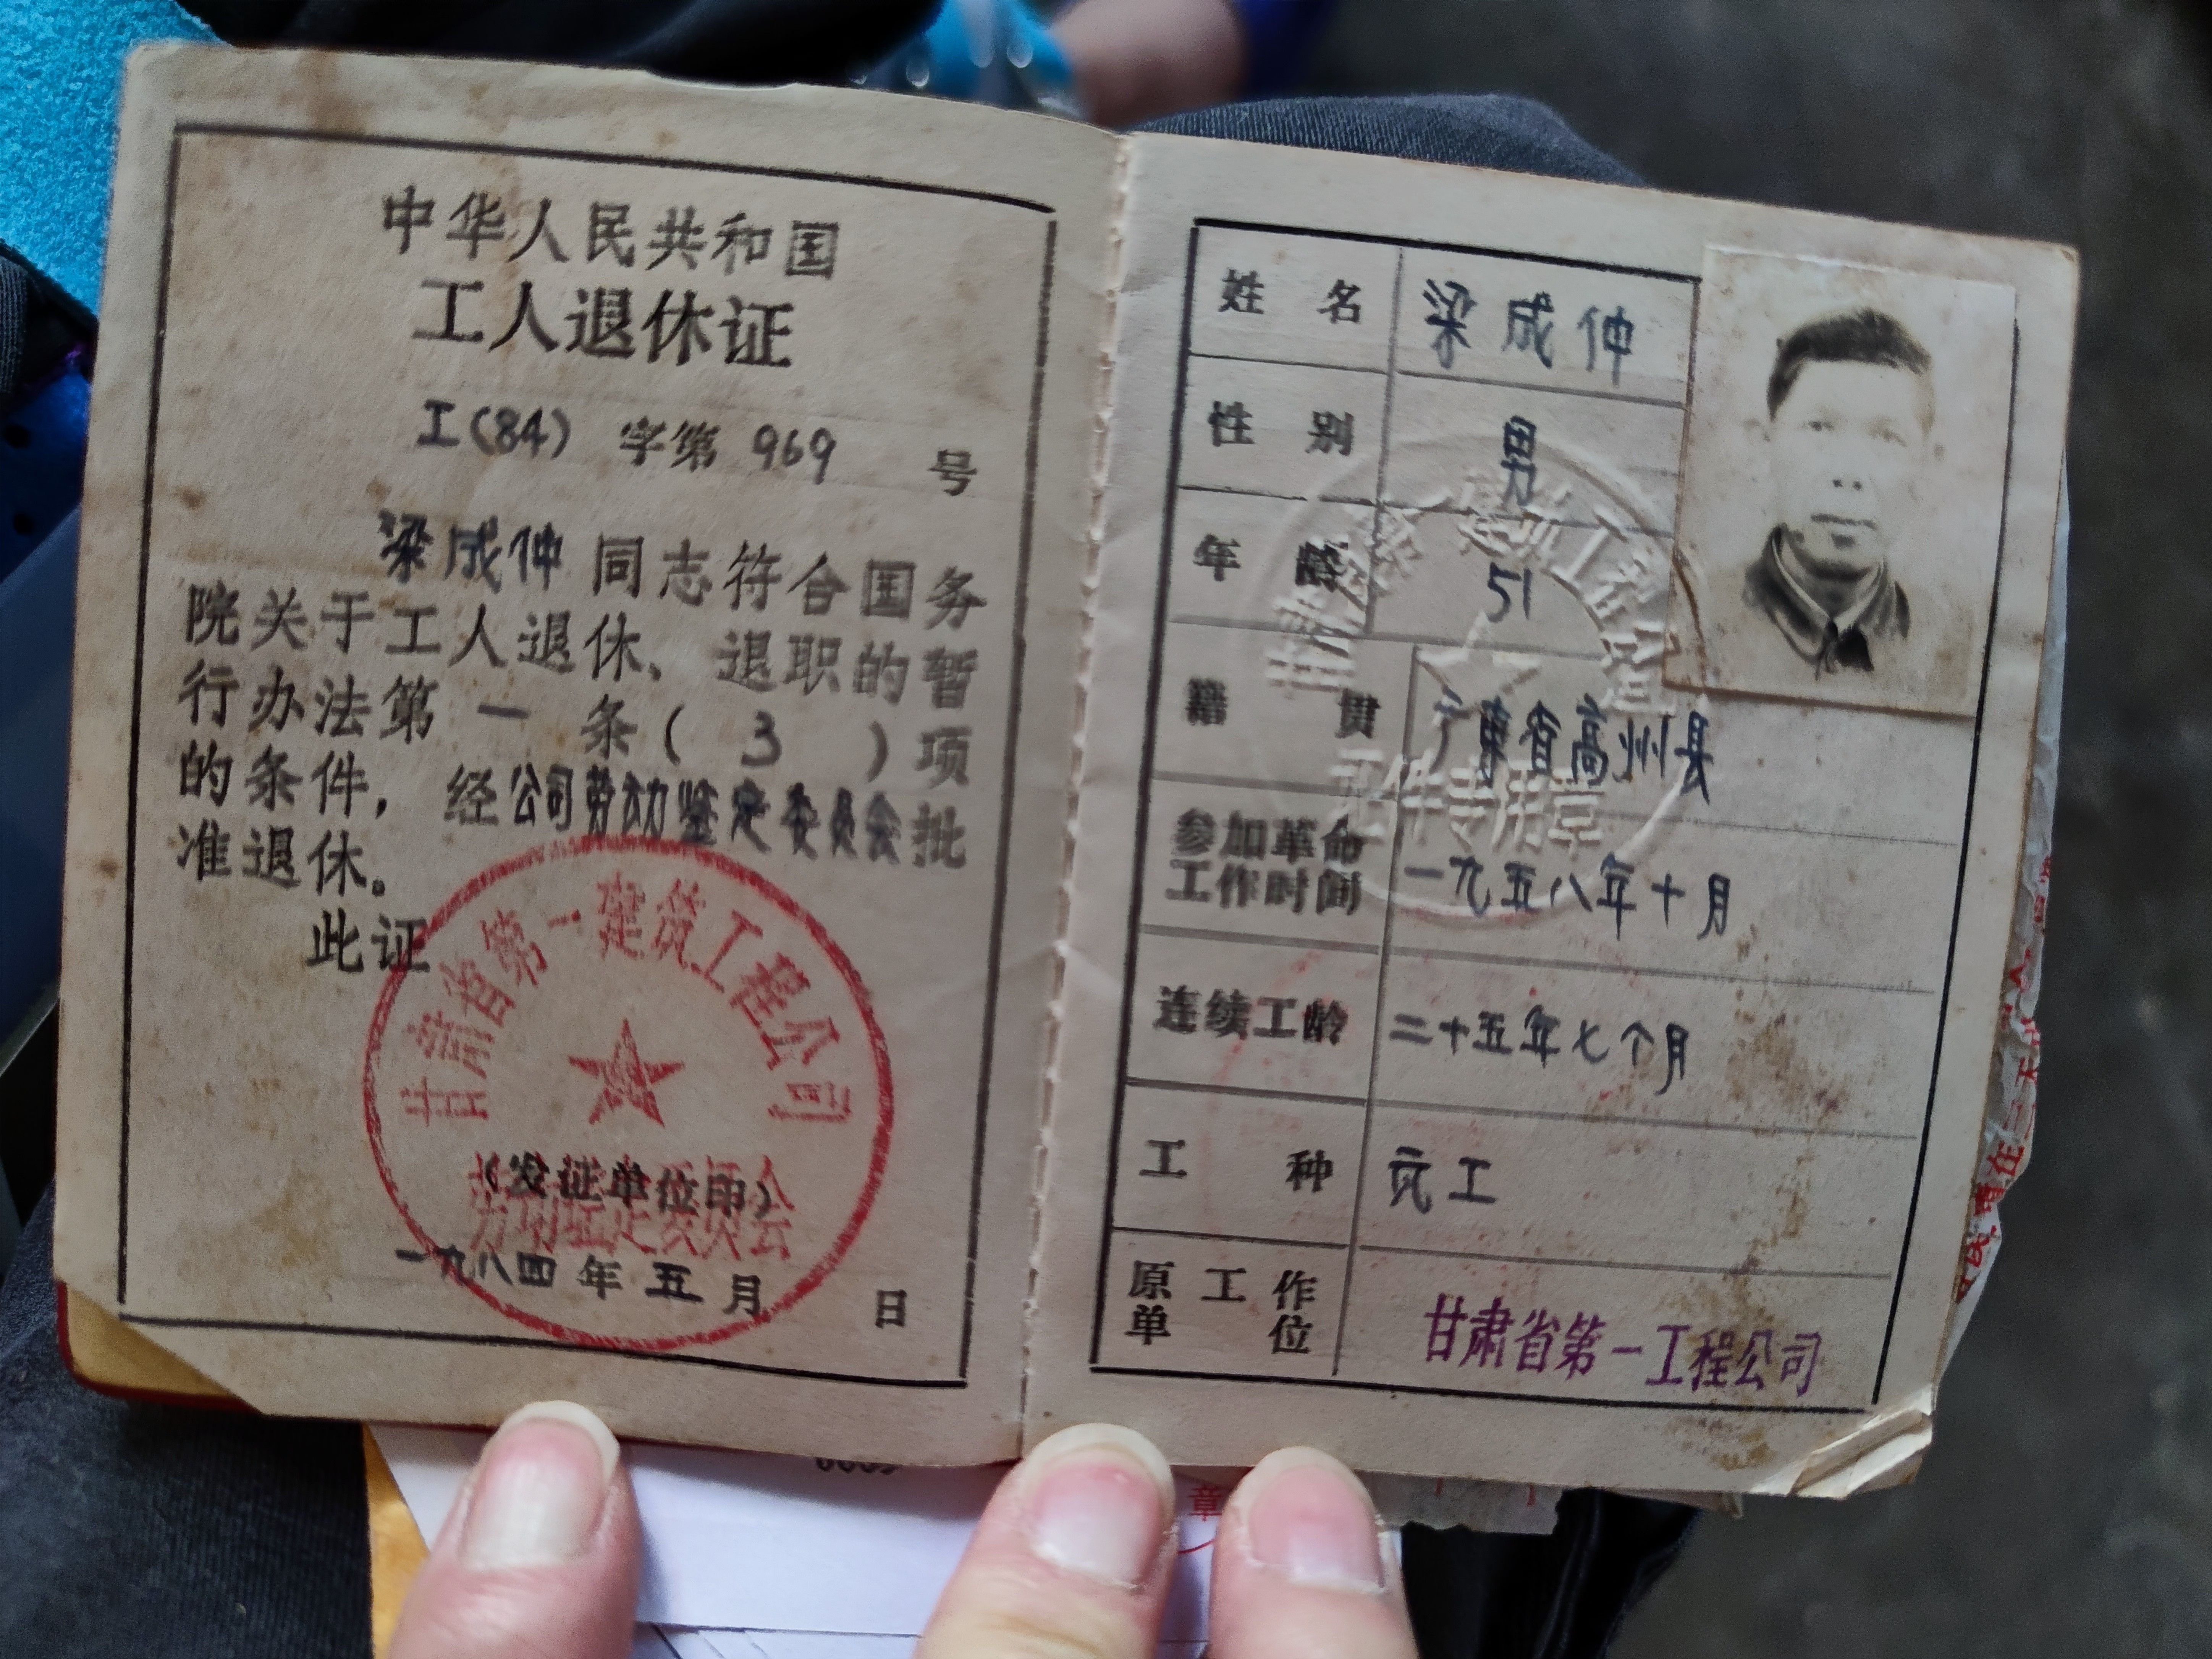 中华人民共和国
工人退休证
工(84) 字第 969 号
梁成仲 同志符合国务
院关于工人退休、退职的暂
行办法第 一 条( 3 )项
的条件，经公司劳动鉴定委员会批
准退休。
此证
甘肃省第一建筑工程公司
(发证单位印)
劳动鉴定委员会
一九八四年五月 日
姓名 梁成仲
性别 男
年龄 51
籍贯 广东省高州县
参加革命
工作时间 一九五八年十月
连续工龄 二十五年七个月
工种 瓦工
原工作
单位 甘肃省第一工程公司
证件专用章
章